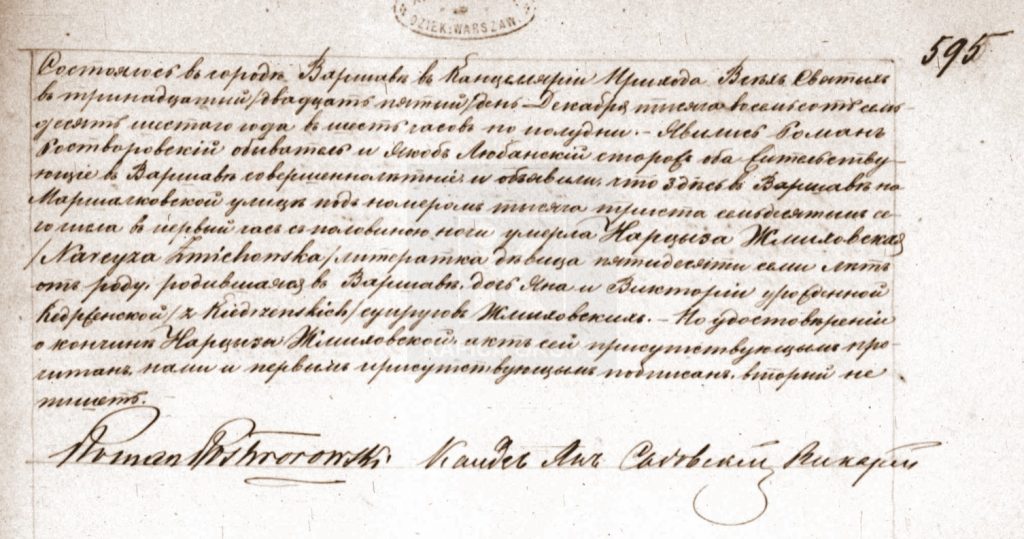 DZIEK: WARSZAW.
595
Состоялось въ городѣ Варшавѣ въ Канцеляріи Прихода Всѣхъ Святыхъ
въ тринадцатый /двадцать пятый/ день Декабря тысяча восемьсотъ семь-
десятъ шестаго года въ шесть часовъ по полудни. – Явились Романъ
Ростворовскій обыватель и Якобъ Любанскій сторожъ оба жительству-
ющіе въ Варшавѣ совершеннолѣтніе, и объявили, что здѣсь въ Варшавѣ на
Маршалковской улицѣ подъ номеромъ тысяча триста семьдесятымъ се-
го числа въ первый часъ съ половиною ночи умерла Нарцыза Жмиховская
/Narcyza Żmichowska/ литератка дѣвица пятидесяти семи лѣтъ
отъ роду, родившаяся въ Варшавѣ, дочь Яна и Викторіи урожденной
Кедрженской /z Kiedrzenskich/ супруговъ Жмиховскихъ. – По удостовѣреніи
о кончинѣ Нарцызы Жмиховской, актъ сей присутствующимъ про-
читанъ, нами и первымъ присутствующимъ подписанъ, вторый не
пишетъ.
Roman Rostworowski Ксендзъ Янъ Садовскій Викарій